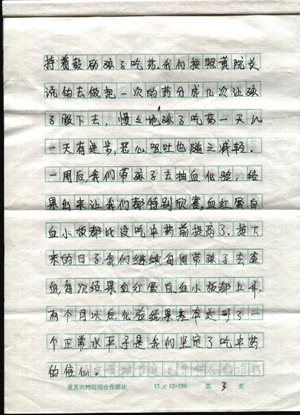 持着鼓励孩子吃药。我们按照黄院长
说的去做把一次的药分成几次让孩
子服下去，慢々地孩子吃药一天比
一天有进步，恶心呕吐也随之减轻。
一周后，我们带孩子去抽血化验，结
果出来让我们都特别欣喜，血红蛋白
血小板都比没吃中药前提高了。接下
来的日子我们继续每周带孩子去查
血，每次结果血红蛋白，血小板都上升
两个月以后化验结果基本达到了一
个正常水平于是我们坚定了吃中药
的信心。
农村信用合作联社 15×12=180 第 3 页